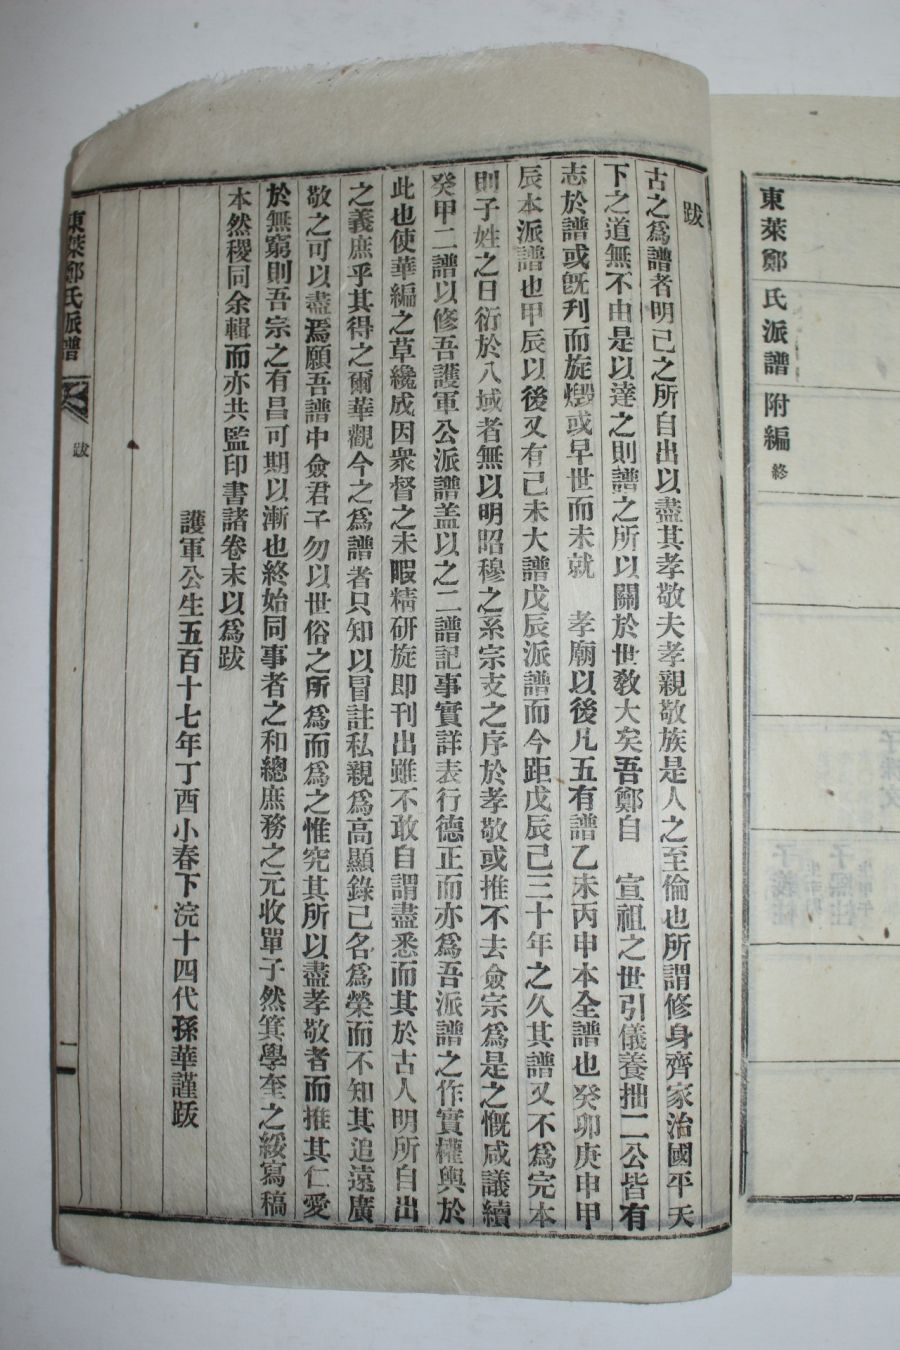 東萊鄭氏派譜附編 終
跋
古之爲譜者明己之所自出以盡其孝敬夫孝親敬族是人之至倫也所謂修身齊家治國平天
下之道無不由是以達之則譜之所以關於世敎大矣吾鄭自 宣祖之世引儀養拙二公皆有
志於譜或旣刋而旋燬或早世而未就 孝廟以後凡五有譜乙未丙申本全譜也癸卯庚申甲
辰本派譜也甲辰以後又有己未大譜戊辰派譜而今距戊辰已三十年之久其譜又不爲完本
則子姓之日衍於八域者無以明昭穆之系宗支之序於孝敬或推不去僉宗爲是之慨咸議續
癸甲二譜以修吾護軍公派譜盖以之二譜記事實詳表行德正而亦爲吾派譜之作實權輿於
此也使華編之草纔成因衆督之未暇精硏旋即刊出雖不敢自謂盡悉而其於古人明所自出
之義庶乎其得之爾華觀今之爲譜者只知以冒註私親爲高顯錄己名爲榮而不知其追遠廣
敬之可以盡焉願吾譜中僉君子勿以世俗之所爲而爲之惟究其所以盡孝敬者而推其仁愛
於無窮則吾宗之有昌可期以漸也終始同事者之和總庶務之元收單子然箕學奎之綏寫稿
本然稷同余輯而亦共監印書諸卷末以爲跋
護軍公生五百十七年丁酉小春下浣十四代孫華謹跋
東萊鄭氏派譜 跋 一